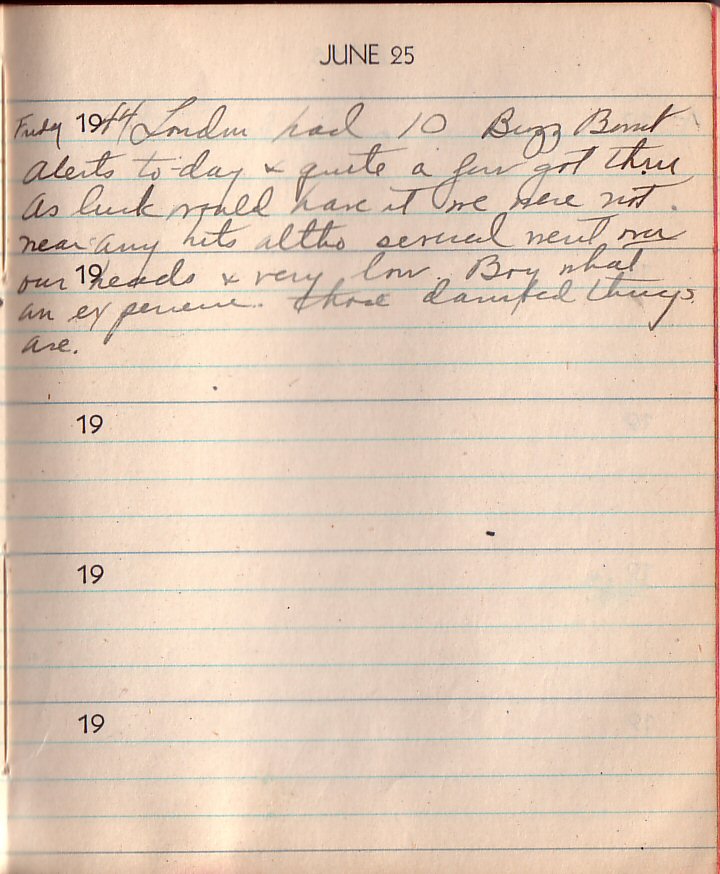 JUNE 25
Friday 1944 London had 10 Buzz Bomb
alerts to-day & quite a few got thru
As luck would have it we were not
near any hits altho several went over
our heads & very low. Boy what
19
an experience. those damned things
are.
19
19
19